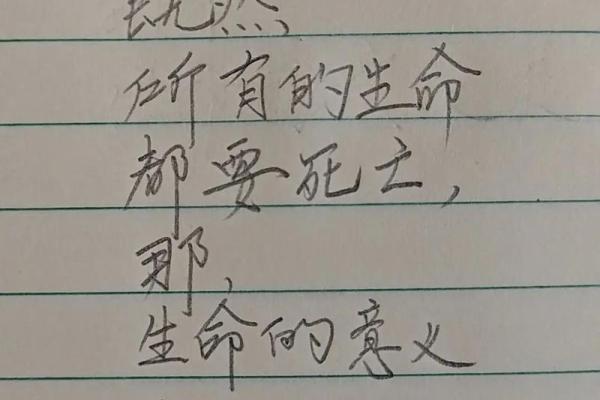 既然,
所有的生命
都要死亡,
那,
生命的意义